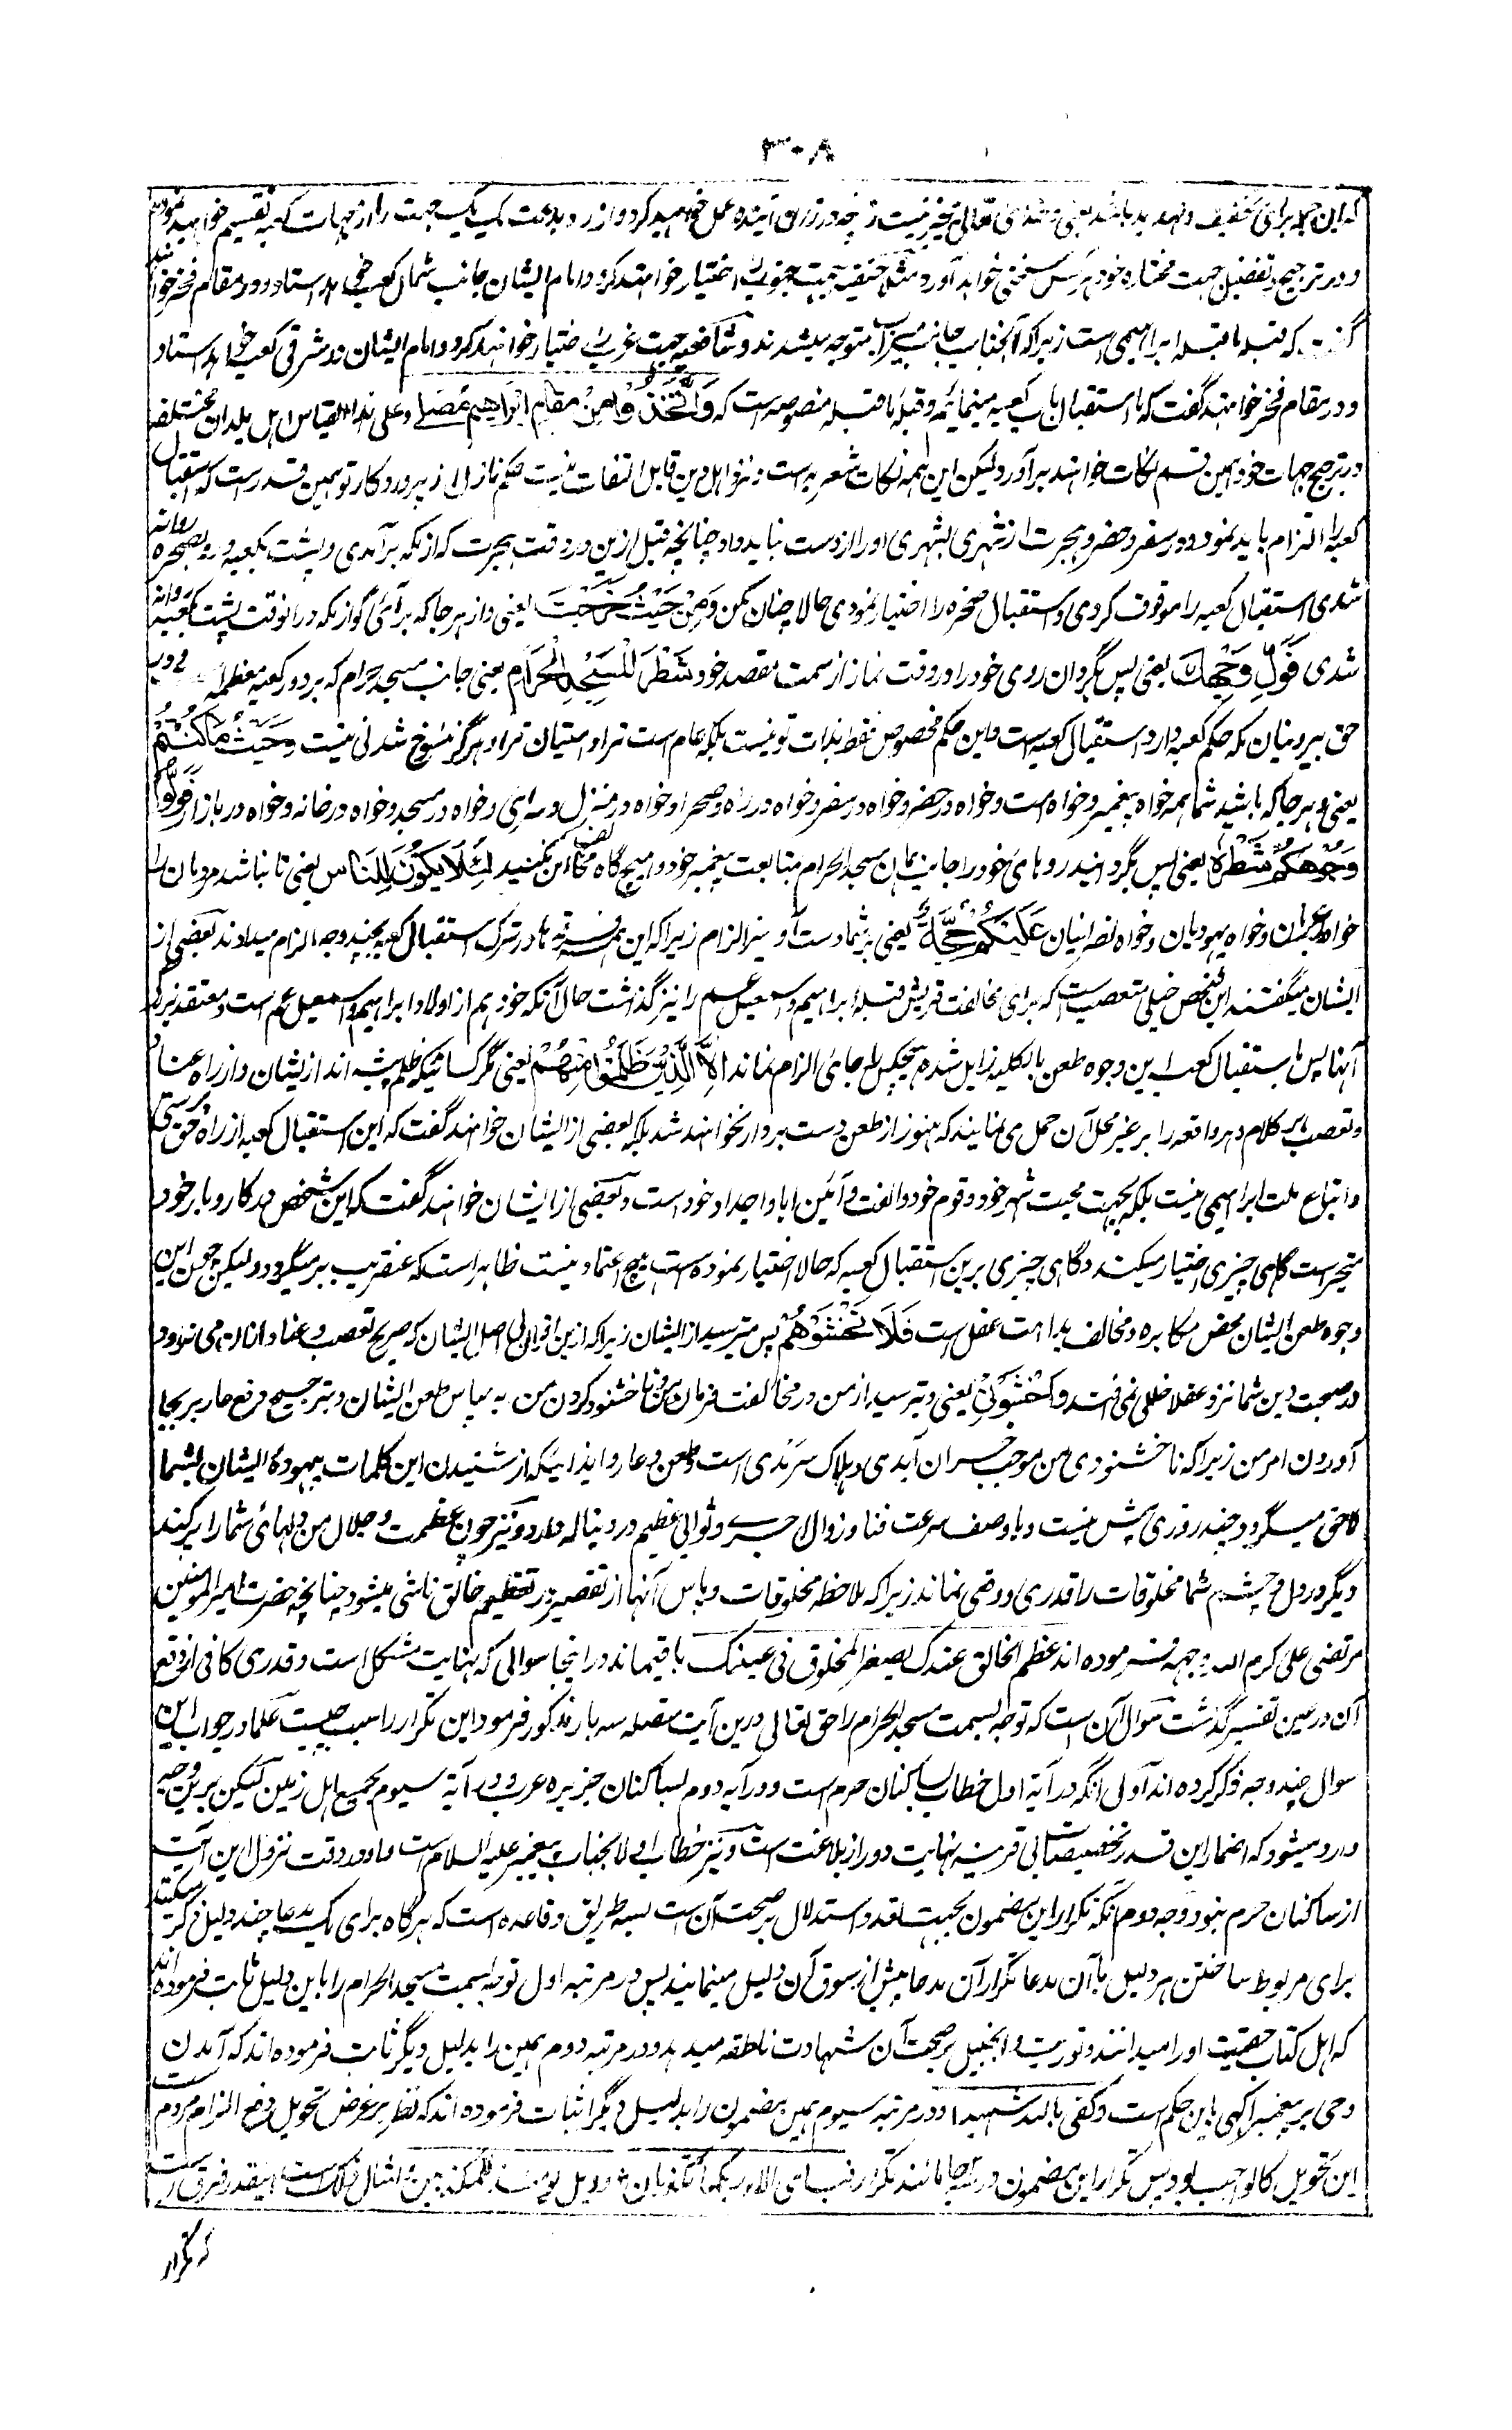 ۳۰۸
که این جمله برای تخفیف و تهدید باشد یعنی و خدای تعالی بیخبر نیست از چه در زمان آینده عمل خواهید کرد و از راه بدعت یک یک جهت را از جهات کعبه تقسیم خواهید نمود
و در ترجیح و تفضیل جهت مختاره خود هر کس سخنی خواهد آورد مثلا حنفیه جهت جنوب را اختیار خواهند کرد و امام ایشان جانب شمال کعبه خواهد استاد و در مقام فخر خواهند
گفت که قبله ما قبله ابراهیمی است زیرا که آنجناب جانب میزاب متوجه میشدند و شافعیه جهت غربی را اختیار خواهند کرد و امام ایشان در شرقی کعبه خواهد استاد
و در مقام فخر خواهند گفت که ما استقبال باب کعبه مینمائیم و قبله ما قبله منصوصه است که وَاتَّخِذُوا مِنْ مَقَامِ اِبْرَاهِیْمَ مُصَلًّی و علی هذا القیاس اهل بلدان مختلفه
در ترجیح جهات خود همین قسم نکات خواهند برآورد و لیکن این همه نکات شعریه است و نزد اهل دین قابل التفات نیست حکم نازل از پروردگار تو همین قدر است که استقبال
کعبه را التزام باید نمود و در سفر و حضر و هجرت از شهری بشهری او را از دست نباید داد چنانچه قبل ازین در وقت هجرت که از مکه برآمدی و پشت بکعبه و رو بصخره روانه
شدی استقبال کعبه را موقوف کردی و استقبال صخره را اختیار نمودی حالا چنان مکن وَمِنْ حَیْثُ خَرَجْتَ یعنی و از هر جا که برآئی گو از مکه در انوقت پشت بکعبه روانه
شدی فَوَلِّ وَجْهَكَ یعنی پس بگردان روی خود را در وقت نماز از سمت مقصد خود شَطْرَ الْمَسْجِدِ الْحَرَامِ یعنی جانب مسجد حرام که بر دور کعبه معظمه و در
حق بیرونیان مکه حکم کعبه دارد استقبال کعبه است و این حکم مخصوص فقط بذات تو نیست بلکه عام است ترا و امتیان ترا و هرگز منسوخ شدنی نیست وَحَیْثُ مَا كُنْتُمْ
یعنی و هر جا که باشید شما همه خواه پیغمبر و خواه امت و خواه در حضر و خواه در سفر و خواه در راه و صحرا و خواه در منزل و سرای و خواه در مسجد و خواه در خانه و خواه در بازار فَوَلُّوا
وُجُوْهَكُمْ شَطْرَهٗ یعنی پس بگردانید روهای خود را جانب همان مسجد الحرام بمتابعت پیغمبر خود و هیچ گاه مخالفت این مکنید لِئَلَّا یَكُوْنَ لِلنَّاسِ یعنی تا نباشد مردمان را
خواه عربان و خواه یهودیان و خواه نصرانیان عَلَیْكُمْ حُجَّةٌ یعنی بر شما دست آویز الزام زیرا که این همه فرقه ها در ترک استقبال کعبه بچند وجه الزام میدادند بعضی از
ایشان میگفتند این شخص خیلی متعصب است که برای مخالفت قریش قبله ابراهیم و اسمعیل هم را نیز گذاشت حال آنکه خود هم از اولاد ابراهیم و اسمعیل هم است و معتقد بزرگی
آنها پس باستقبال کعبه این وجوه طعن بالکلیه زایل شد و هیچکس را جای الزام نماند اِلَّا الَّذِیْنَ ظَلَمُوْا مِنْهُمْ یعنی مگر کسانیکه ظلم پیشه اند از ایشان و از راه عناد
و تعصب هر کلام و هر واقعه را بر غیر محل آن حمل می نمایند که هنوز از طعن دست بردار نخواهند شد بلکه بعضی از ایشان خواهند گفت که این استقبال کعبه از راه حق پرستی
و اتباع ملت ابراهیمی نیست بلکه بجهت محبت شهر خود و قوم خود و الفت و آئین ابا و اجداد خود است و بعضی از ایشان خواهند گفت که این شخص در کاروبار خود
متحیر است گاهی چیزی اختیار میکند و گاهی چیزی برین استقبال کعبه که حالا اختیار نموده است هیچ اعتماد نیست ظاهر است که عنقریب بر میگردد و لیکن چون این
وجوه طعن ایشان محض مکابره و مخالف بداهت عقل است فَلَا تَخْشَوْهُمْ پس مترسید از ایشان زیرا که ازین اقوال بی اصل ایشان که صریح تعصب و عناد از ان می تراود
در صحبت دین شما نزد عقلا خللی نمی افتد وَاخْشَوْنِیْ یعنی و بترسید از من در مخالفت فرمان من و ناخشنود کردن من به پاس طعن ایشان و بترجیح دفع عار بر بجا
آوردن امر من زیرا که ناخشنودی من موجب خسران ابدی و هلاک سرمدی است و طعن و عار و ایذائیکه از شنیدن این کلمات بیهوده ایشان بشما
لاحق میگردد چند روزی بیش نیست و باوصف سرعت فنا و زوال اجری و ثوابی عظیم در دنباله دارد و نیز چون عظمت و جلال من دلهای شما را پر کند
دیگر در دل و چشم شما مخلوقات را قدری و وقعی نماند زیرا که ملاحظه مخلوقات و پاس آنها از تقصیر در تعظیم خالق ناشی میشود چنانچه حضرت امیر المومنین
مرتضی علی کرم الله وجهه فرموده اند عظم الخالق عندک یصغر المخلوق فی عینک باقیماند در اینجا سوالی که بنهایت مشکل است و قدری کافی از دفع
آن در عین تفسیر گذشت سوال آن است که توجه بسمت مسجد الحرام را حق تعالی درین آیت متصله سه بار مذکور فرمود این تکرار را سبب چیست علما در جواب این
سوال چند وجه ذکر کرده اند اولی آنکه در آیة اول خطاب بساکنان حرم است و در آیه دوم بساکنان جزیره عرب و در آیة سیوم بجمیع اهل زمین لیکن برین وجه
وارد میشود که اضمار این قدر تخصیصات بی قرینه نهایت دور از بلاغت است و نیز خطاب اولا بجناب پیغمبر علیه السلام است و او در وقت نزول این آیت
از ساکنان حرم نبود وجه دوم آنکه تکرار این مضمون بجهت تعدد استدلال بر صحت آن است بسه طریق و قاعده است که هر گاه برای یک مدعا چند دلیل ذکر میکنند
برای مربوط ساختن هر دلیل با آن مدعا تکرار آن مدعا پیش از سوق آن دلیل مینمایند پس در مرتبه اول توجه بسمت مسجد الحرام را باین دلیل ثابت فرموده اند
که اهل کتاب حقیت او را میدانند و توریت و انجیل بر صحت آن شهادت ناطقه میدهد و در مرتبه دوم همین را بدلیل دیگر ثابت فرموده اند که آمدن
وحی بر پیغمبر الهی باین حکم است و کفی بالله شهیدا و در مرتبه سیوم همین مضمون را بدلیل دیگر اثبات فرموده اند که نظر بر غرض تحویل و دفع الزام مردم است
این تحویل کالواجب بود پس تکرار این مضمون در سه جا مانند تکرار فبای الاء ربکما تکذبان و ویل یومئذ للمکذبین و امثال ذلک است اینقدر فرق است
که تکرار